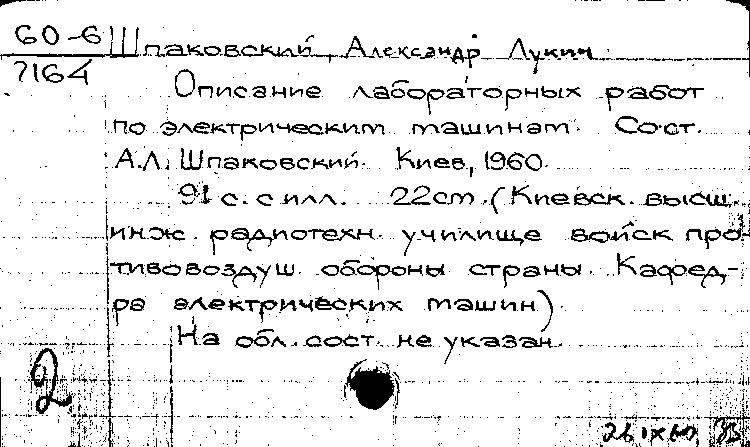 60-6 Шпаковский, Александр Лукич.
7164
Описание лабораторных работ
по электрическим машинам. Сост.
А.Л. Шпаковский. Киев, 1960.
91 с. с илл. 22 см. (Киевск. высш.
инж. радиотехн. училище войск про-
тивовоздуш. обороны страны. Кафед-
ра электрических машин).
На обл. сост. не указан.
2